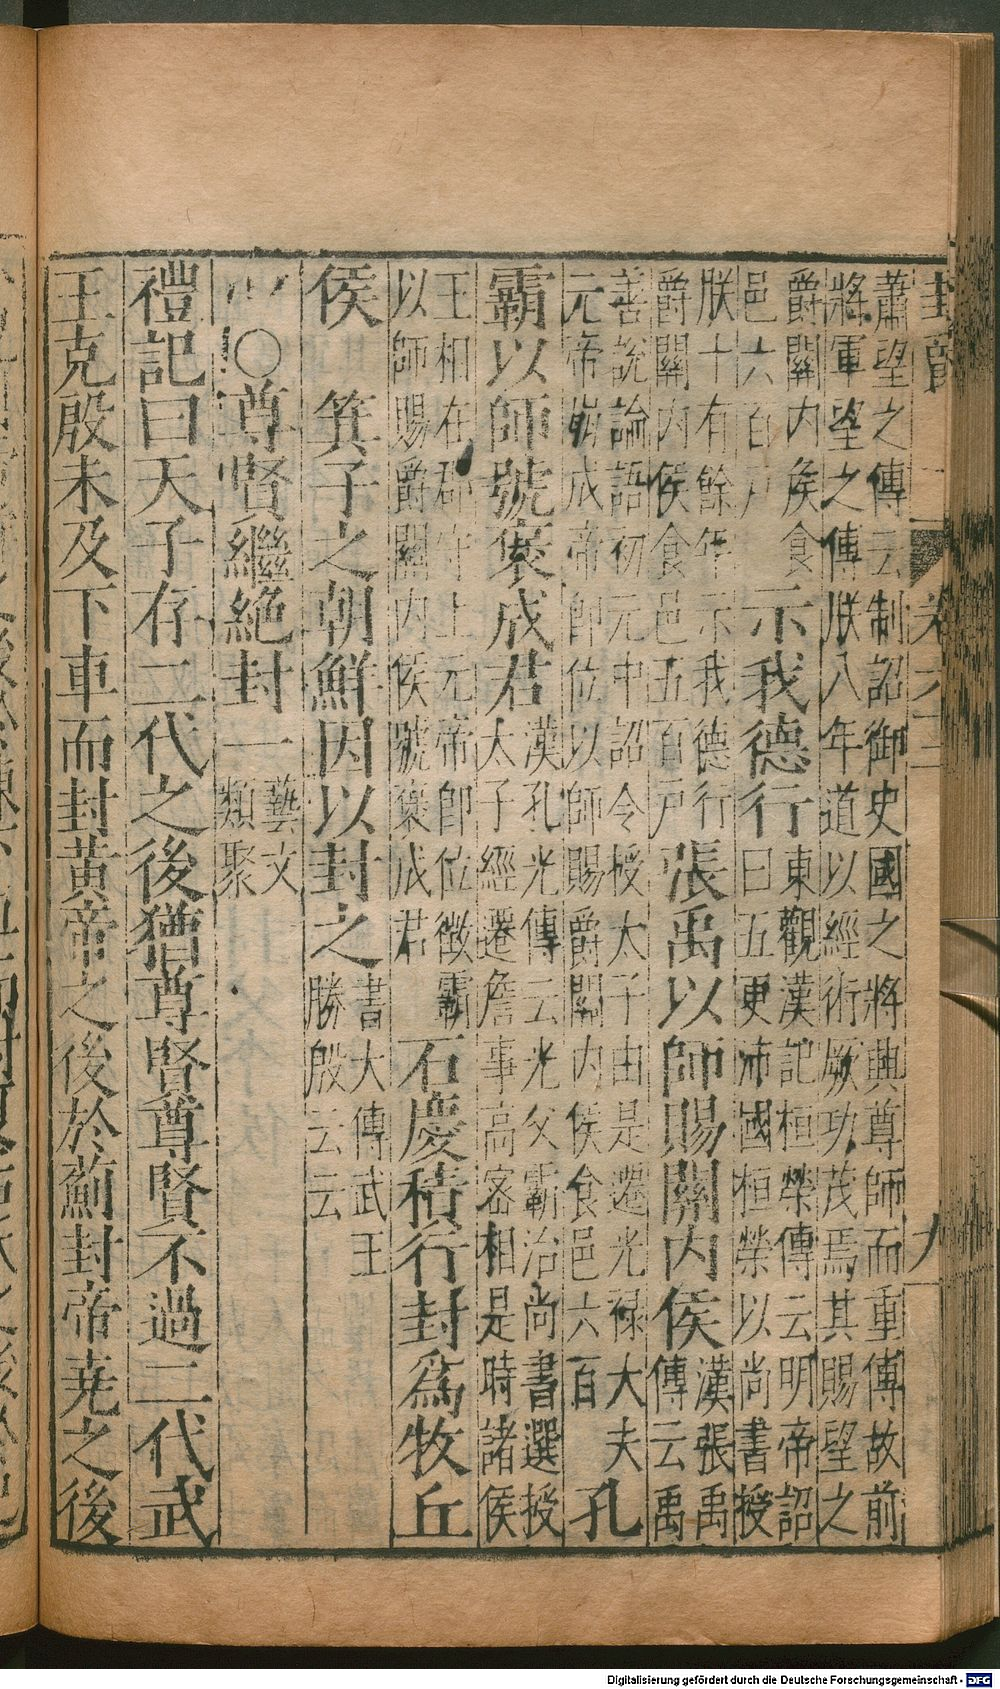 蕭望之傳云制詔御史國之將興尊師而重傅故前
將軍望之傳朕八年道以經術厥功茂焉其賜望之
爵關內侯食
邑六百戶
示我德行
東觀漢記桓榮傳云明帝詔
曰五更沛國桓榮以尚書授
朕十有餘年示我德行
爵關內侯食邑五百戶
張禹以師賜關內侯
漢張禹
傳云禹
善說論語初元中詔令授太子由是遷光祿大夫
元帝崩成帝卽位以師賜爵關內侯食邑六百
孔
霸以師號褒成君
漢孔光傳云光父霸治尚書選授
太子經遷詹事高密相是時諸侯
王相在郡守上元帝卽位徵霸
以師賜爵關內侯號褒成君
石慶積行封爲牧丘
侯　箕子之朝鮮因以封之
書大傳武王
勝殷云云
○尊賢繼絕封一
藝文
類聚
禮記曰天子存二代之後猶尊賢尊賢不過二代武
王克殷未及下車而封黃帝之後於薊封帝堯之後
Digitalisierung gefördert durch die Deutsche Forschungsgemeinschaft - DFG